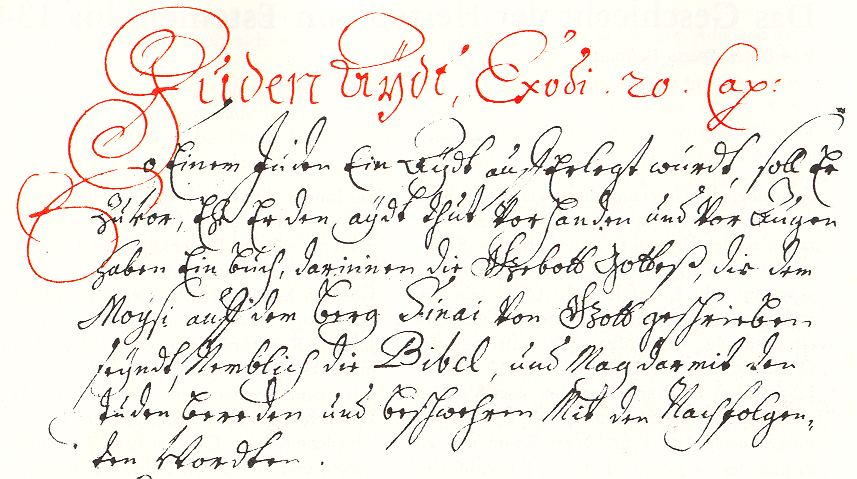 Juden Aÿdt, Exodi. 20. Cap:
So Einem Juden Ein Aÿdt aufferlegt würdt, soll Er
zuvor, Ehe Er den aydt thut vorhanden und vor Augen
haben Ein Buch, darinnen die Gebott Gottes, die dem
Moysi auff dem berg Sinai von Gott geschrieben
seyndt, Nemblich die Bibel, und Mag darmit den
Juden bereden und beschwehren Mit den Nachfolgen-
ten Wordten.